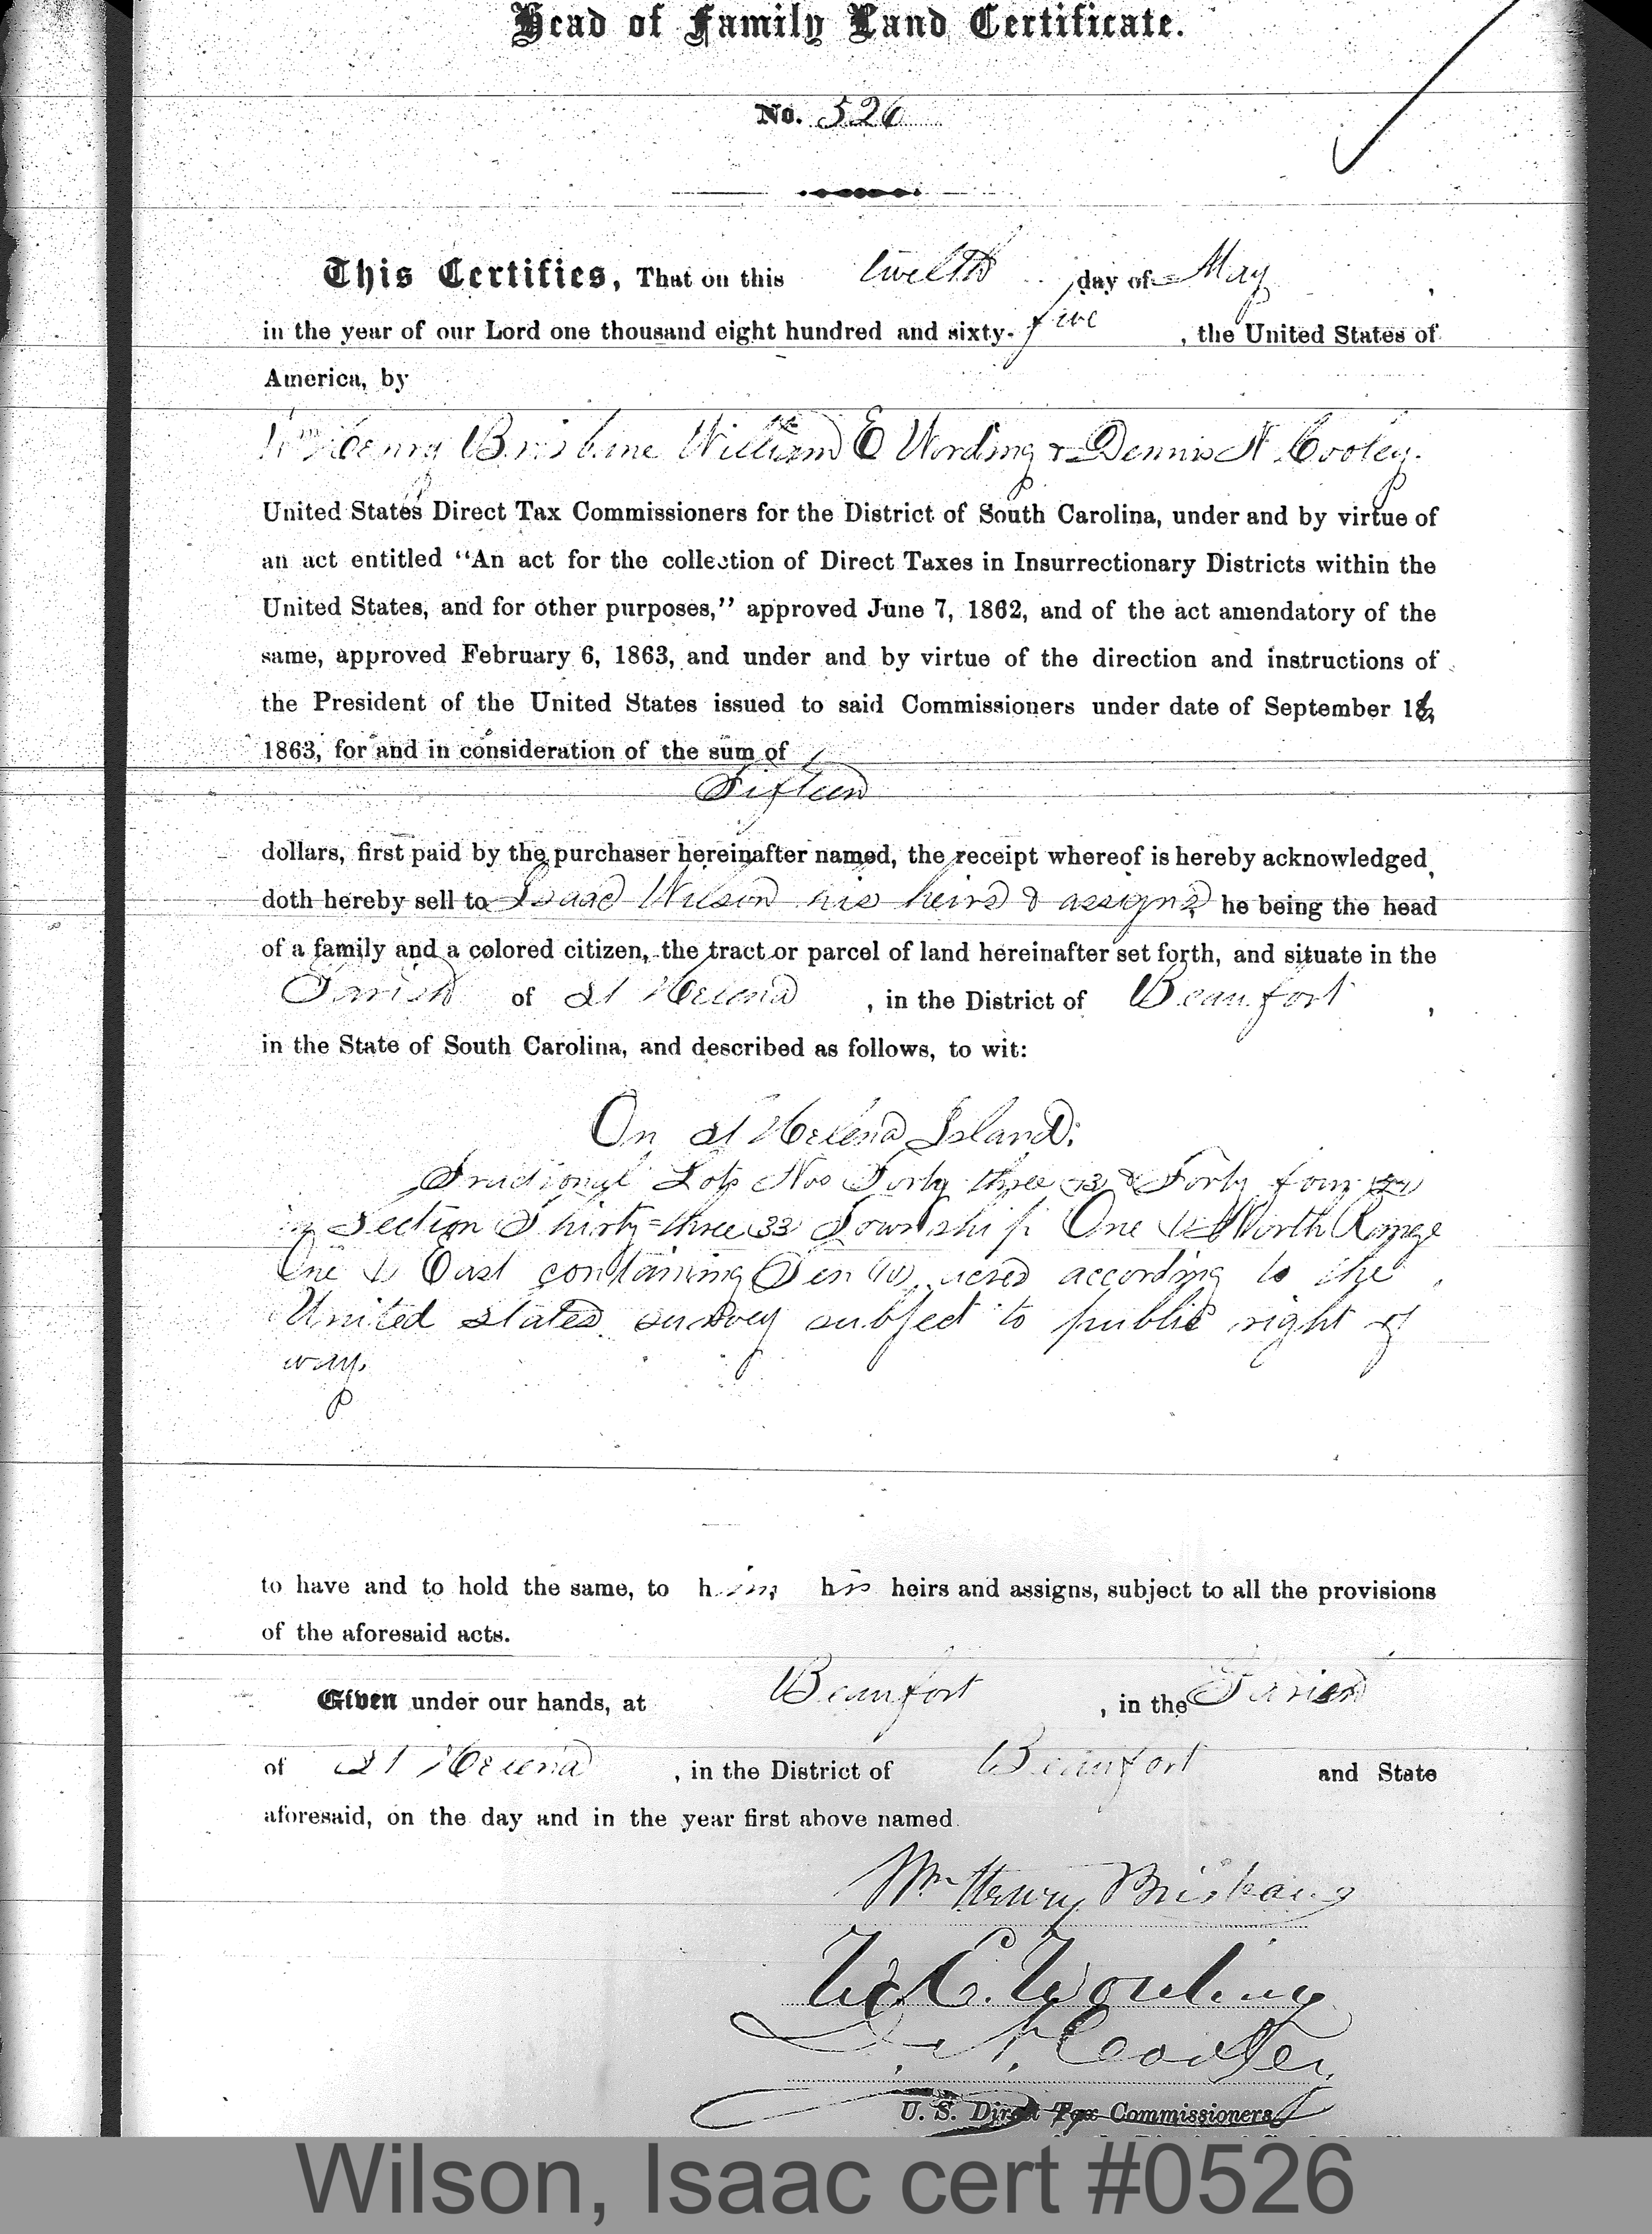 Head of Family Land Certificate.
No. 526
This Certifies, That on this twelth day of May,
in the year of our Lord one thousand eight hundred and sixty-five, the United States of
America, by
Wm Henry Brisbane William E Wording & Dennis N Cooley.
United States Direct Tax Commissioners for the District of South Carolina, under and by virtue of
an act entitled “An act for the collection of Direct Taxes in Insurrectionary Districts within the
United States, and for other purposes,” approved June 7, 1862, and of the act amendatory of the
same, approved February 6, 1863, and under and by virtue of the direction and instructions of
the President of the United States issued to said Commissioners under date of September
1863, for and in consideration of the sum of
Fifteen
dollars, first paid by the purchaser hereinafter named, the receipt whereof is hereby acknowledged,
doth hereby sell to Isaac Wilson his heirs & assigns, he being the head
of a family and a colored citizen, the tract or parcel of land hereinafter set forth, and situate in the
Parish of St Helena, in the District of Beaufort,
in the State of South Carolina, and described as follows, to wit:
On St Helena Island:
Fractional Lots Nos Forty three 43 & Forty four 44
in Section Thirty=three 33 Township One 1 North Range
One 1 East containing Ten (10) acres according to the
United States survey subject to public right of
way.
to have and to hold the same, to him, his heirs and assigns, subject to all the provisions
of the aforesaid acts.
Given under our hands, at Beaufort, in the Parish
of St Helena, in the District of Beaufort and State
aforesaid, on the day and in the year first above named.
Wm Henry Brisbane
W. E. Wording
D. N. Cooley
U. S. Direct Tax Commissioners
Wilson, Isaac cert #0526